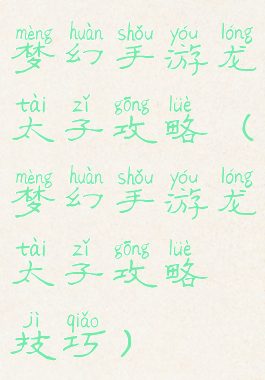 mèng huàn shǒu yóu lóng
梦幻手游龙
tài zǐ gōng lüè
太子攻略（
mèng huàn shǒu yóu lóng
梦幻手游龙
tài zǐ gōng lüè
太子攻略
jì qiǎo
技巧）